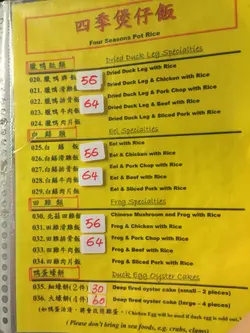 四季煲仔飯
Four Seasons Pot Rice
臘鴨飯類 Dried Duck Leg Specialties
020. 臘鴨髀飯 56 Dried Duck Leg with Rice
021. 臘鴨滑雞飯 Dried Duck Leg & Chicken with Rice
022. 臘鴨排骨飯 64 Dried Duck Leg & Pork Chop with Rice
023. 臘鴨牛肉飯 Dried Duck Leg & Beef with Rice
024. 臘鴨肉片飯 Dried Duck Leg & Sliced Pork with Rice
白鱔類 Eel Specialties
025. 白鱔飯 56 Eel with Rice
026. 白鱔滑雞飯 Eel & Chicken with Rice
027. 白鱔排骨飯 64 Eel & Pork Chop with Rice
028. 白鱔牛肉飯 Eel & Beef with Rice
029. 白鱔肉片飯 Eel & Sliced Pork with Rice
田雞類 Frog Specialties
030. 北菇田雞飯 56 Chinese Mushroom and Frog with Rice
031. 田雞滑雞飯 Frog & Chicken with Rice
032. 田雞排骨飯 64 Frog & Pork Chop with Rice
033. 田雞牛肉飯 Frog & Beef with Rice
034. 田雞肉片飯 Frog & Sliced Pork with Rice
鴨蛋蠔餅 Duck Egg Oyster Cakes
035. 細蠔餅(2件) 30 Deep fired oyster cake (small - 2 pieces)
036. 大蠔餅(4件) 60 Deep fired oyster cake (large - 4 pieces)
(Chicken Egg will be used if duck egg is not available.)
( Please don't bring in sea foods, e.g. crabs, clams